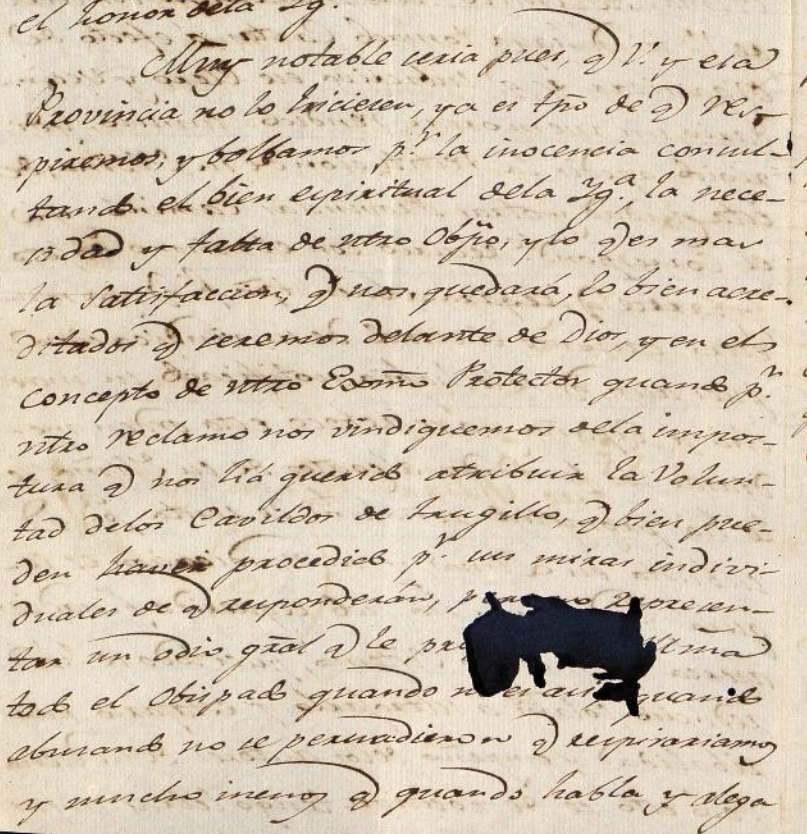 el honor dela Yg.
Muy notable seria pues, q V. y esa
Provincia no lo hiciesen, ya es tpo de q res-
piremos, y bolbamos pr. la inocencia consul-
tando el bien espiritual dela Yg.a, la nece-
sidad y falta de ntro Obpo, y lo q es mas
la satisfaccion, q nos quedará, lo bien acre-
ditados q seremos delante de Dios, y en el
concepto de ntro Exmo Protector quando pr.
ntro reclamo nos vindiquemos dela impos-
tura q nos há querido atribuir la Volun-
tad delos Cavildos de Trugillo, q bien pue-
den haver procedido pr. sus miras indivi-
duales de q responderán, no represen-
tar un odio gral q le Ilma
todo el Obispado quando quando
abusando no se persuadieron q respirariamos
y mucho menos q quando habla y alega